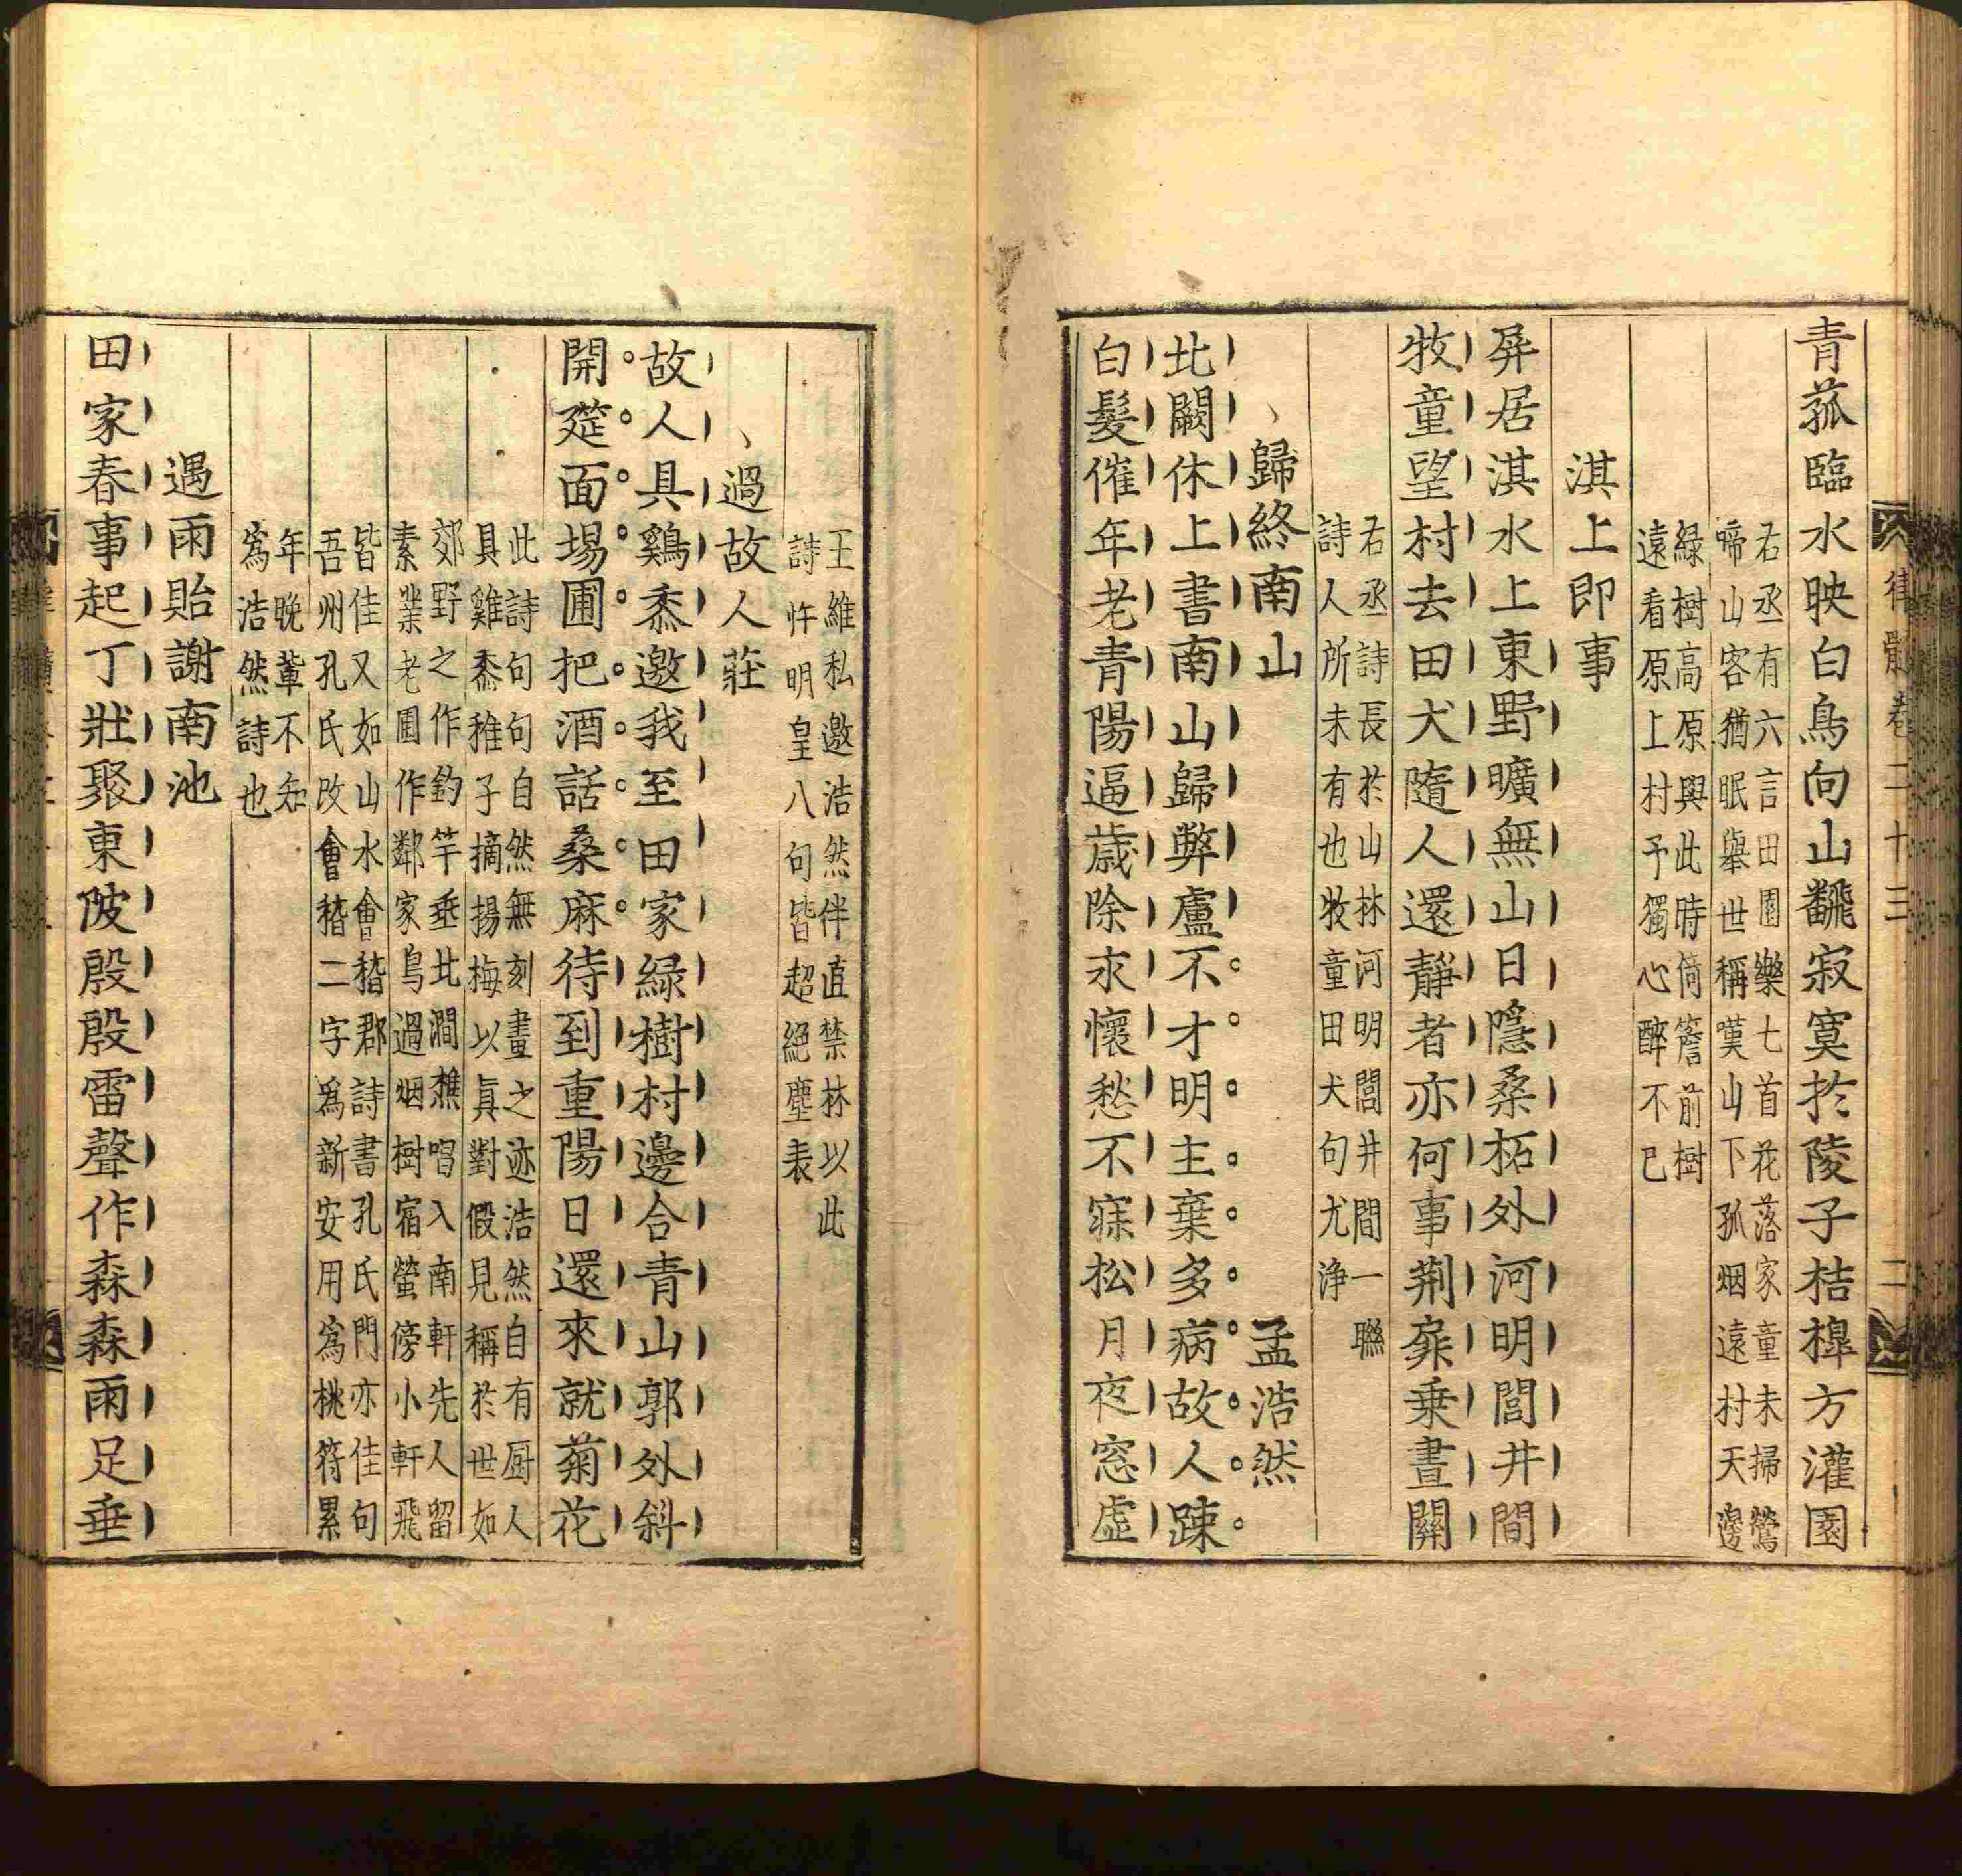 青菰臨水映白鳥向山飜寂寞於陵子桔槹方灌園
右丞有六言田園樂七首花落家童未掃鶯
啼山客猶眠舉世稱嘆山下孤烟遠村天邊
綠樹高原與此時倚簷前樹
遠看原上村予獨心醉不已
淇上即事
屏居淇水上東野曠無山日隱桑柘外河明閭井間
牧童望村去田犬隨人還靜者亦何事荆扉乗晝關
右丞詩長於山林河明閭井間一聯
詩人所未有也牧童田犬句尤浄
歸終南山 孟浩然
北闕休上書南山歸弊盧不才明主棄多病故人踈
白髮催年老青陽逼歲除永懷愁不寐松月夜窓虛
律髓卷二十三 二
王維私邀浩然伴直禁林以此
詩忤明皇八句皆超絕塵表
過故人莊
故人具鷄黍邀我至田家綠樹村邊合青山郭外斜
開筵面場圃把酒話桑麻待到重陽日還來就菊花
此詩句句自然無刻畫之迹浩然自有厨人
具雞黍稚子摘揚梅以眞對假見稱於世如
郊野之作釣竿垂北澗樵唱入南軒先人留
素業老圃作鄰家鳥過烟樹宿螢傍小軒飛
皆佳又如山水會稽郡詩書孔氏門亦佳句
吾州孔氏改會稽二字爲新安用爲桃符累
年晚輩不知
爲浩然詩也
遇雨貽謝南池
田家春事起丁壯聚東陂殷殷雷聲作森森雨足垂